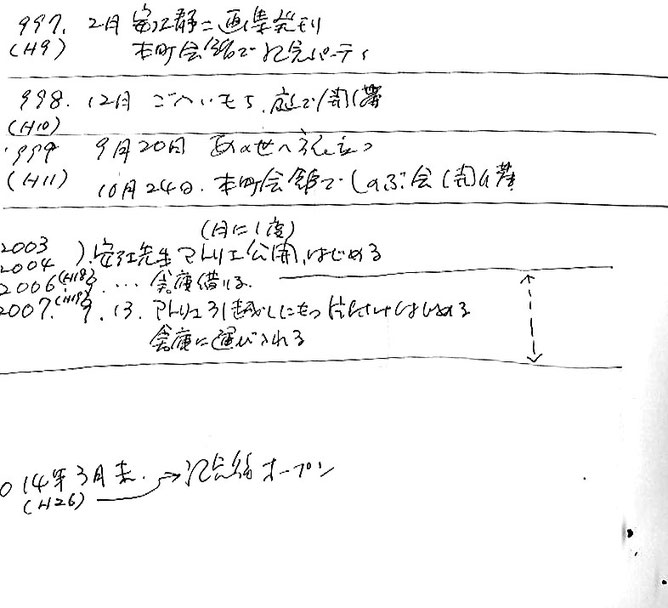 997. 2月 安江静二画集発刊
(H9) 本町会館で記念パーティ
998. 12月 ごへいもち、庭で
(H10)
1999 9月20日 あの世へ旅立つ
(H11) 10月24日. 本町会館でしのぶ会
(月に1度)
2003
2004 ) 安江先生アトリエ公開、はじめる
2006(H18) .... 倉庫借りる.
2007.(H19) 9.13. アトリエ引越しにもつ片付けはじめる
倉庫に運び入れる
014年3月末. → 記念館オープン
(H26)